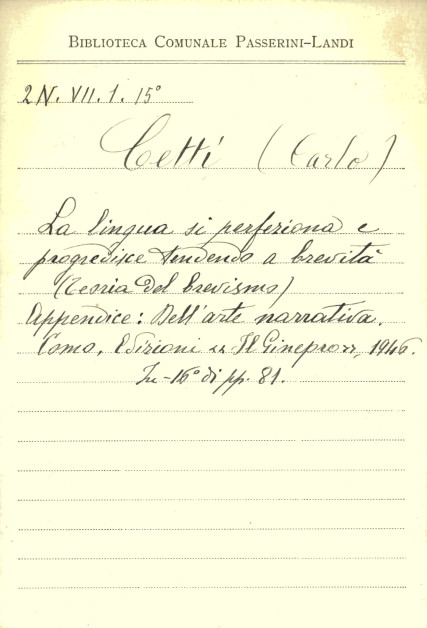 BIBLIOTECA COMUNALE PASSERINI-LANDI
2N. VII. 1. 15°
Cetti (Carlo)
La lingua si perfeziona e
progredisce tendendo a brevità
(Teoria del brevismo)
Appendice: Dell'arte narrativa.
Como, Edizioni "Il Ginepro", 1946.
In-16° di pp. 81.